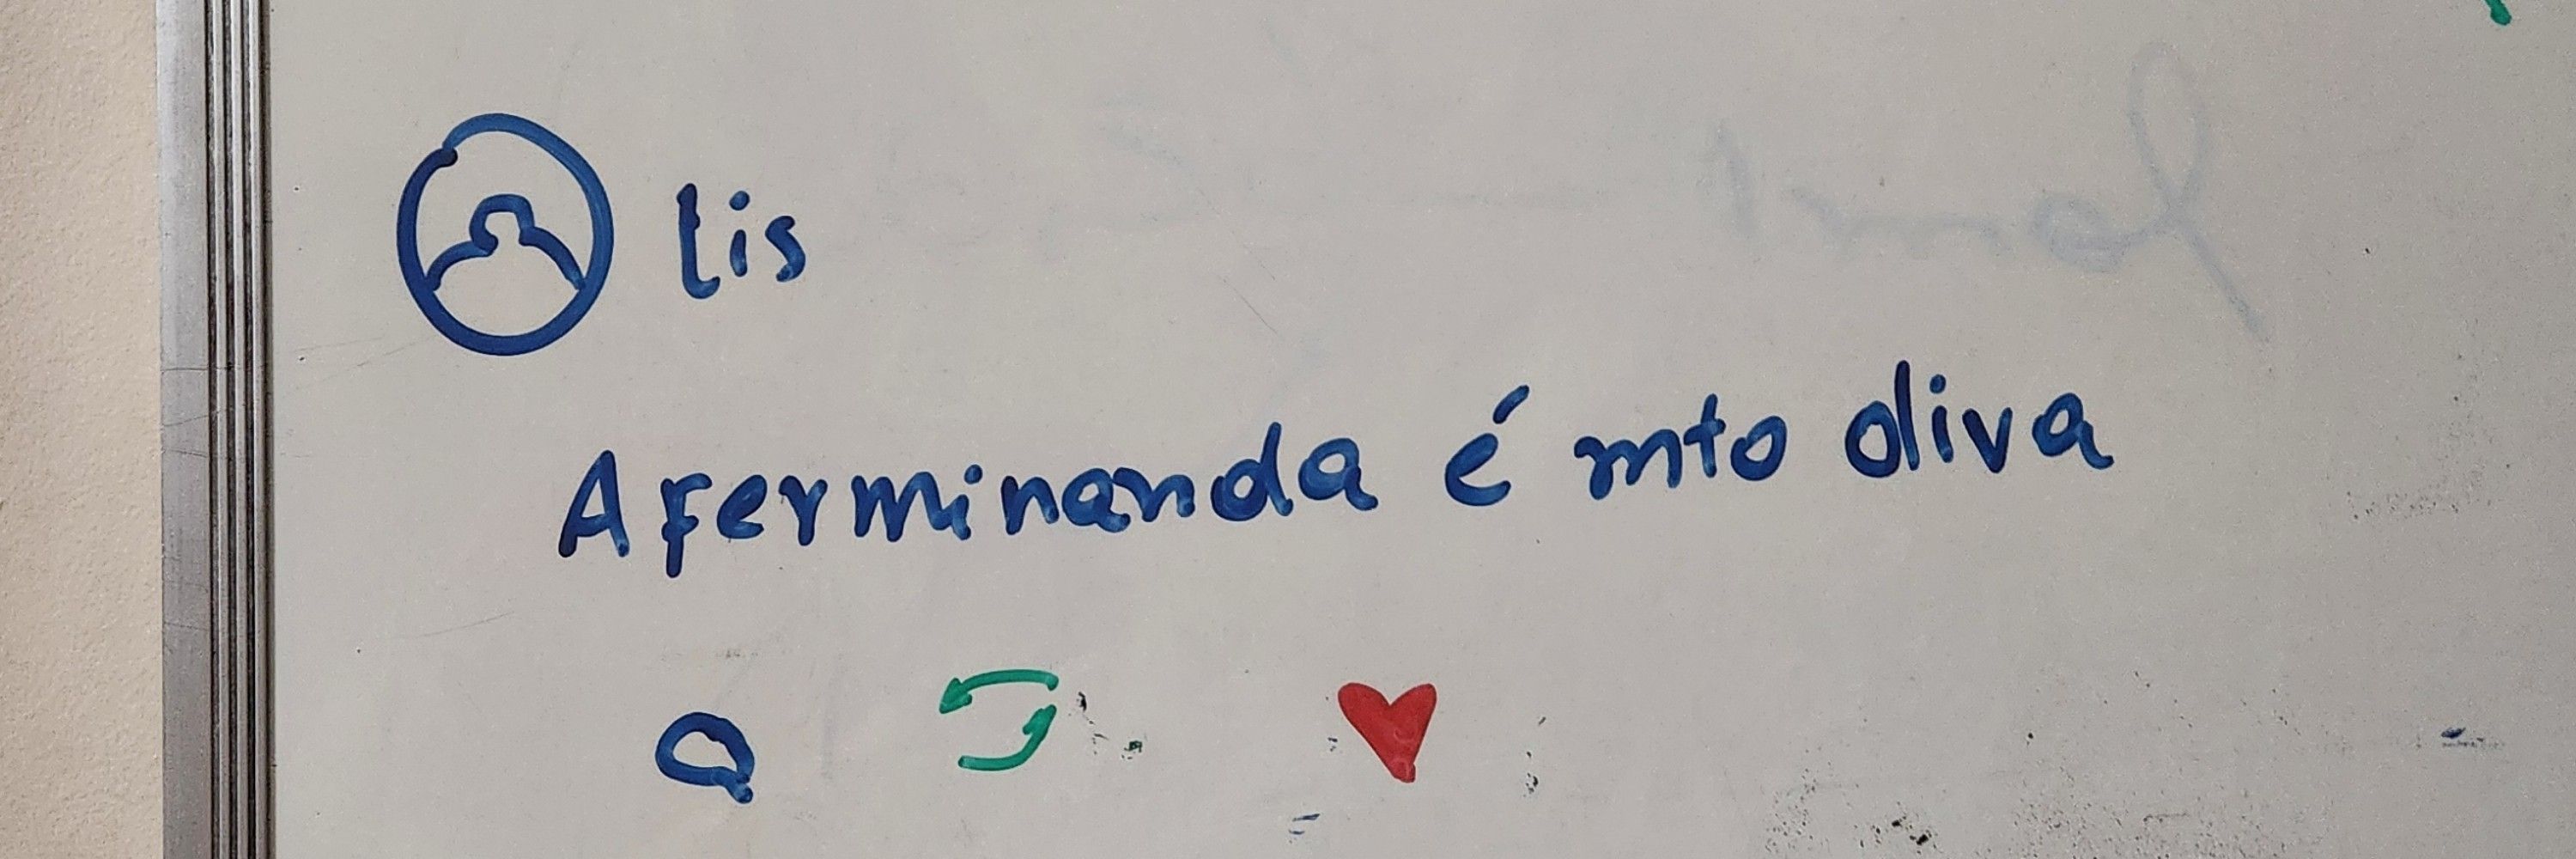 lis
A ferminanda é mto diva